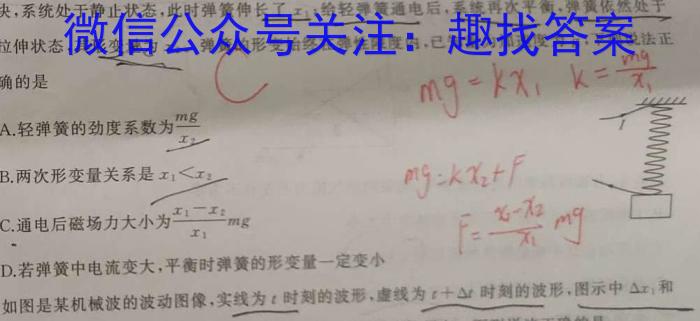 块,系统处于静止状态,此时弹簧伸长了 x₁;给轻弹簧通电后,系统再次平衡,弹簧依然处于
拉伸状态
微信公众号关注：趣找答案
法正
确的是
C
mg = kx₁ k = mg/x₁
A.轻弹簧的劲度系数为 mg/x₂
I
B.两次形变量关系是 x₁<x₂
mg = kx₂+F
C.通电后磁场力大小为 (x₁-x₂)/x₁ mg
F = (x₁-x₂)/x₁ mg
D.若弹簧中电流变大,平衡时弹簧的形变量一定变小
如图是某机械波的波动图像,实线为 t 时刻的波形,虚线为 t+Δt 时刻的波形,图示中 Δx₁ 和